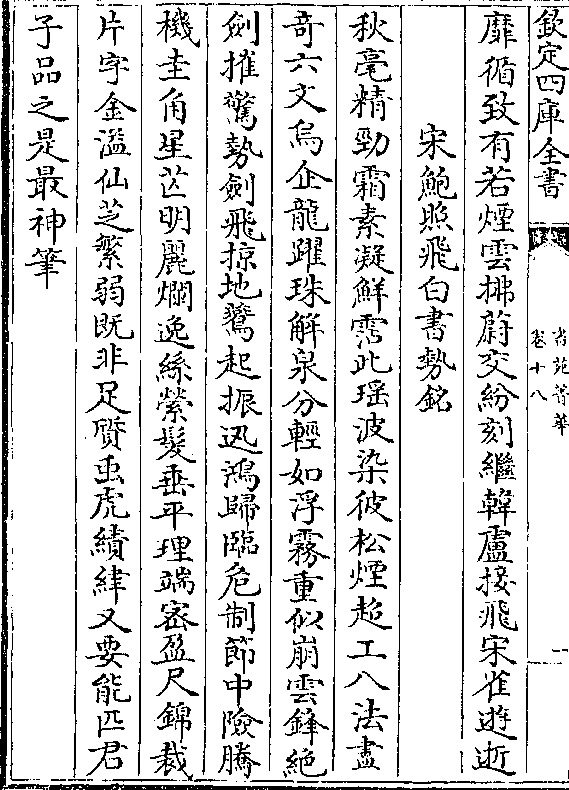 欽定四庫全書
書苑菁華
卷十八
一
靡循致有若煙雲拂蔚交紛刻繼韓盧接飛宋雀遊逝
宋鮑照飛白書勢銘
秋毫精勁霜素凝鮮霑此瑶波染彼松煙超工八法盡
奇六文鳥企龍躍珠解泉分輕如浮霧重似崩雲鋒絶
劍摧驚勢劍飛掠地鶱起振迅鴻歸臨危制節中險騰
機圭角星芒明麗爛逸絲縈髮垂平理端密盈尺錦裁
片字金溢仙芝繁弱既非足贋䖝虎績緯又要能匹君
子品之是最神筆